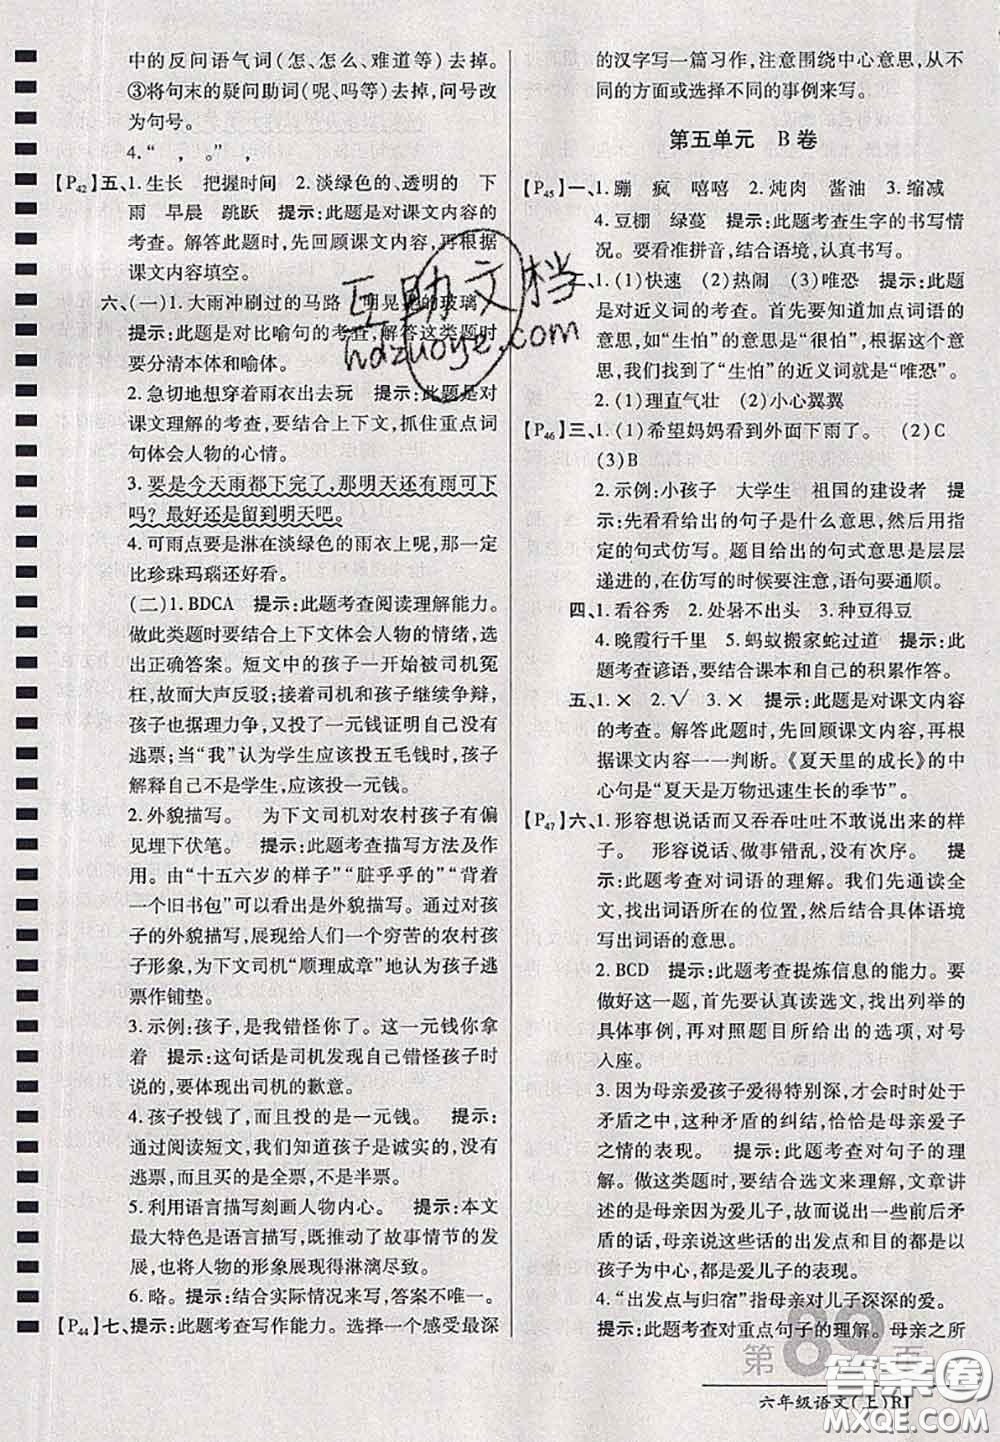 中的反问语气词(怎、怎么、难道等)去掉。
③将句末的疑问助词(呢、吗等)去掉，问号改
为句号。
4.“　，　。”，
【P42】五、1.生长　把握时间　2.淡绿色的、透明的　下
雨　早晨　跳跃　提示:此题是对课文内容的
考查。解答此题时,先回顾课文内容,再根据
课文内容填空。
六、(一)1.大雨冲刷过的马路　明晃晃的玻璃
提示:此题是对比喻句的考查,解答这类题时
要分清本体和喻体。
2.急切地想穿着雨衣出去玩　提示:此题是对
课文理解的考查,要结合上下文,抓住重点词
句体会人物的心情。
3.要是今天雨都下完了,那明天还有雨可下
吗?最好还是留到明天吧。
4.可雨点要是淋在淡绿色的雨衣上呢,那一定
比珍珠玛瑙还好看。
(二)1.BDCA　提示:此题考查阅读理解能力。
做此类题时要结合上下文体会人物的情绪,选
出正确答案。短文中的孩子一开始被司机冤
枉,于是大声反驳;接着司机和孩子继续争辩,
孩子也据理力争,又投了一元钱证明自己没有
逃票;当“我”认为学生应该投五毛钱时,孩子
解释自己已经不是学生,应该投一元钱。
2.外貌描写。　为下文司机对农村孩子有偏
见埋下伏笔。　提示:此题考查描写方法及作
用。由“十五六岁的样子”“脏乎乎的”“背着
一个旧书包”可以看出是外貌描写。通过对孩
子的外貌描写,展现给人们一个穷苦的农村孩
子形象,为下文司机“顺理成章”地认为孩子逃
票作铺垫。
3.示例:孩子,是我错怪你了。这一元钱你拿
着　提示:这句话是司机发现自己错怪孩子时
说的,要体现出司机的歉意。
4.孩子投钱了,而且投的是一元钱。　提示:
通过阅读短文,我们知道孩子是诚实的,没有
逃票,而且买的是全票,不是半票。
5.利用语言描写刻画人物内心。　提示:本文
最大特色是语言描写,既推动了故事情节的发
展,也将人物的形象展现得淋漓尽致。
6.略。提示:结合实际情况来写,答案不唯一。
【P44】七、提示:此题考查写作能力。选择一个感受最深
的汉字写一篇习作,注意围绕中心意思,从不
同的方面或选择不同的事例来写。
第五单元　B卷
【P45】一、1.蹦　疯　嘻嘻　2.炖肉　酱油　3.缩减
4.豆棚　绿蔓　提示:此题考查生字的书写情
况。要看准拼音,结合语境,认真书写。
二、1.(1)快速　(2)热闹　(3)唯恐　提示:此题
是对近义词的考查。首先要知道加点词语的
意思,如“生怕”的意思是“很怕”,根据这个意
思,我们找到了“生怕”的近义词就是“唯恐”。
2.(1)理直气壮　(2)小心翼翼
【P46】三、1.(1)希望妈妈看到外面下雨了。　(2)C
(3)B
2.示例:小孩子　大学生　祖国的建设者　提
示:先看看给出的句子是什么意思,然后用指
定的句式仿写。题目给出的句式意思是层层
递进的,在仿写的时候要注意,语句要通顺。
四、1.看谷秀　2.处暑不出头　3.种豆得豆
4.晚霞行千里　5.蚂蚁搬家蛇过道　提示:此
题考查谚语,要结合课本和自己的积累作答。
五、1.×　2.√　3.×　提示:此题是对课文内容
的考查。解答此题时,先回顾课文内容,再根
据课文内容一一判断。《夏天里的成长》的中
心句是“夏天是万物迅速生长的季节”。
【P47】六、1.形容想说话而又吞吞吐吐不敢说出来的样
子。　形容说话、做事错乱,没有次序。　提
示:此题考查对词语的理解。我们先通读全
文,找出词语所在的位置,然后结合具体语境
写出词语的意思。
2.BCD　提示:此题考查提炼信息的能力。要
做好这一题,首先要认真读选文,找出列举的
具体事例,再对照题目所给出的选项,对号
入座。
3.因为母亲爱孩子爱得特别深,才会时时处于
矛盾之中,这种矛盾的纠结,恰恰是母亲爱子
之情的表现。提示:此题考查对句子的理
解。做这道题,要结合选文来理解。文章讲
述的是母亲因为爱儿子,而说出一些前后矛
盾的话,其实这些话的出发点和目的都是以
孩子为中心,都是爱儿子的表现。
4.“出发点与归宿”指母亲对儿子深深的爱。
提示:此题考查对重点句子的理解。母亲之所
第89页
六年级语文(上)RJ
互助文档
hdzuoye.com
答案圈
MXQE.COM